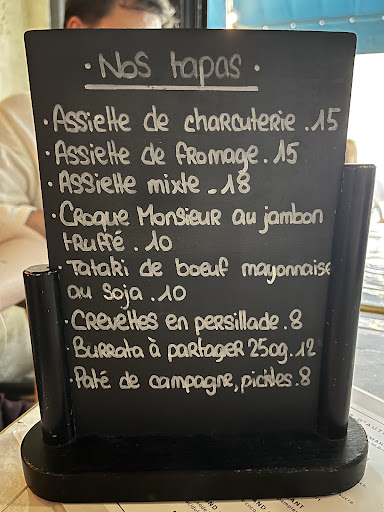 · Nos tapas ·
· Assiette de charcuterie . 15
· Assiette de fromage . 15
· Assiette mixte . 18
· Croque Monsieur au jambon
truffé . 10
· Tataki de boeuf mayonnaise
au soja . 10
· Crevettes en persillade . 8
· Burrata à partager 250g . 12
· Paté de campagne, pickles . 8